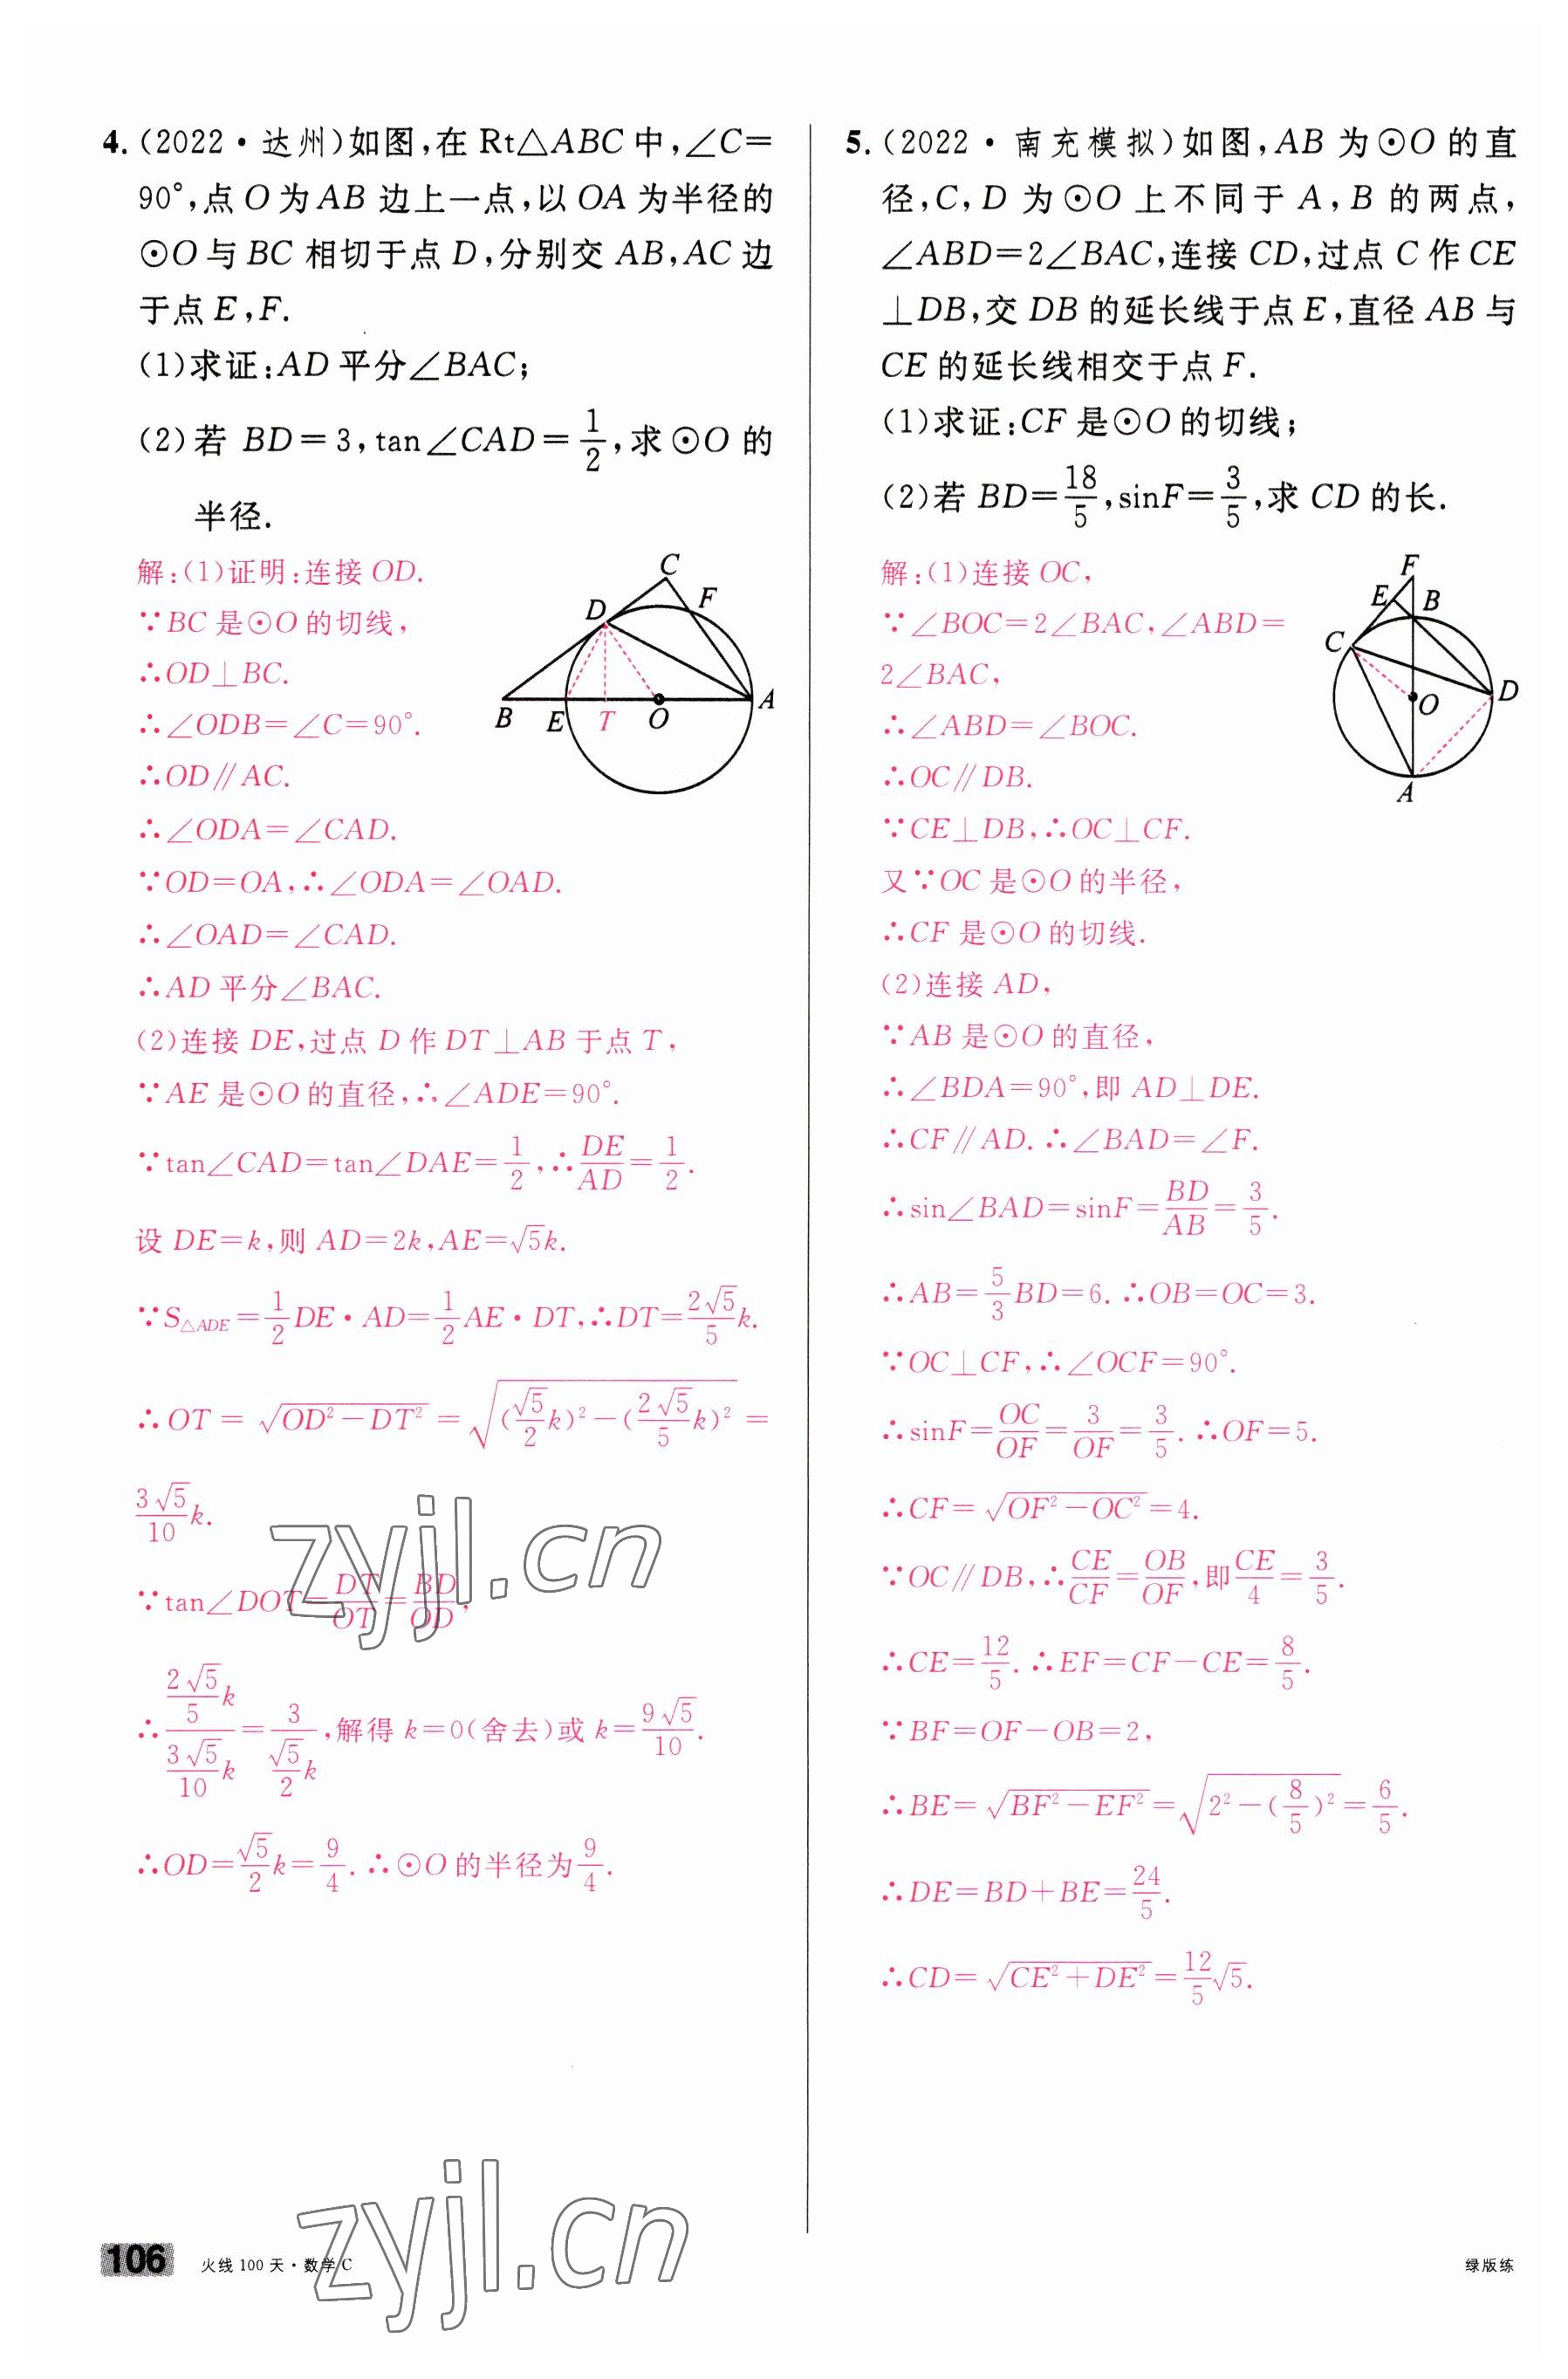 4.(2022·达州)如图,在Rt△ABC中,∠C=
90°,点O为AB边上一点,以OA为半径的
⊙O与BC相切于点D,分别交AB,AC边
于点E,F.
(1)求证:AD平分∠BAC;
(2)若BD=3,tan∠CAD=1/2,求⊙O的
半径.
解:(1)证明:连接OD.
∵BC是⊙O的切线,
∴OD⊥BC.
∴∠ODB=∠C=90°.
∴OD∥AC.
∴∠ODA=∠CAD.
∵OD=OA,∴∠ODA=∠OAD.
∴∠OAD=∠CAD.
∴AD平分∠BAC.
(2)连接DE,过点D作DT⊥AB于点T,
∵AE是⊙O的直径,∴∠ADE=90°.
∵tan∠CAD=tan∠DAE=1/2,∴DE/AD=1/2.
设DE=k,则AD=2k,AE=√5k.
∵S△ADE=1/2DE·AD=1/2AE·DT,∴DT=2√5/5k.
∴OT=√(OD²-DT²)=√((√5/2k)²-(2√5/5k)²)=
3√5/10k.
∵tan∠DOT=DT/OT=BD/OD,
∴(2√5/5k)/(3√5/10k)=3/(√5/2k),解得k=0(舍去)或k=9√5/10.
∴OD=√5/2k=9/4.∴⊙O的半径为9/4.
C
D
F
B
E
T
O
A
5.(2022·南充模拟)如图,AB为⊙O的直
径,C,D为⊙O上不同于A,B的两点,
∠ABD=2∠BAC,连接CD,过点C作CE
⊥DB,交DB的延长线于点E,直径AB与
CE的延长线相交于点F.
(1)求证:CF是⊙O的切线;
(2)若BD=18/5,sinF=3/5,求CD的长.
解:(1)连接OC,
∵∠BOC=2∠BAC,∠ABD=
2∠BAC,
∴∠ABD=∠BOC.
∴OC∥DB.
∵CE⊥DB,∴OC⊥CF.
又∵OC是⊙O的半径,
∴CF是⊙O的切线.
(2)连接AD,
∵AB是⊙O的直径,
∴∠BDA=90°,即AD⊥DE.
∴CF∥AD.∴∠BAD=∠F.
∴sin∠BAD=sinF=BD/AB=3/5.
∴AB=5/3BD=6.∴OB=OC=3.
∵OC⊥CF,∴∠OCF=90°.
∴sinF=OC/OF=3/OF=3/5.∴OF=5.
∴CF=√(OF²-OC²)=4.
∵OC∥DB,∴CE/CF=OB/OF,即CE/4=3/5.
∴CE=12/5.∴EF=CF-CE=8/5.
∵BF=OF-OB=2,
∴BE=√(BF²-EF²)=√(2²-(8/5)²)=6/5.
∴DE=BD+BE=24/5.
∴CD=√(CE²+DE²)=12/5√5.
F
E
B
C
D
O
A
zyjl.cn
zyjl.cn
106 火线100天·数学C
绿版练